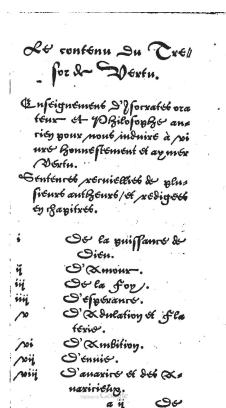 Le contenu du Tre//
sor de Vertu.
Enseignemens d'Isocrates ora
teur et Philosophe an-
cien pour nous induire à vi
ure honnestement et aymer
Vertu.
Sentences recueillies de plu-
sieurs autheurs/et redigees
en chapitres.
i De la puissance de
Dieu.
ij D'Amour.
iij De la Foy.
iiij D'esperance.
v D'Adulation et Fla
terie.
vi D'Ambition.
vij D'enuie.
viij D'auarice et des A-
uaricieux.
a ij De